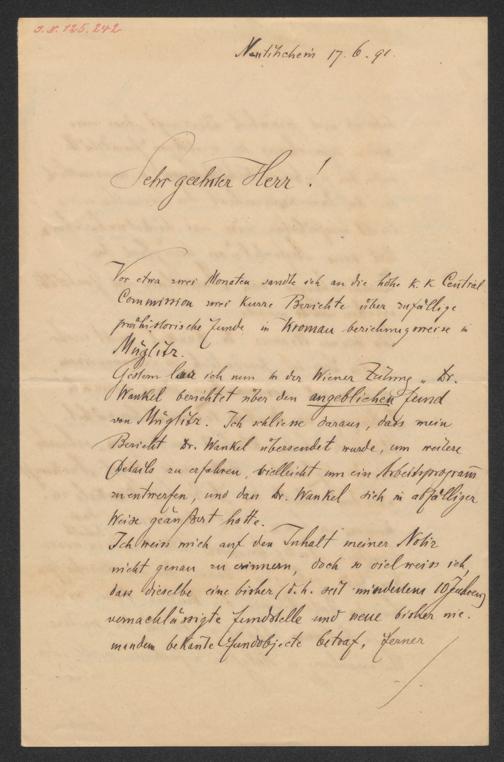 J.N. 125.242
Neutitschein 17. 6. 91.
Sehr geehrter Herr !
Vor etwa zwei Monaten sandte ich an die hohe k. k. Central
Commission zwei kurze Berichte über zufällige
prähistorische Funde in Kromau beziehungsweise in
Müglitz.
Gestern las ich nun in der Wiener Zeitung „ Dr.
Wankel berichtet über den angeblichen Fund
von Müglitz. Ich schliesse daraus, dass mein
Bericht Dr. Wankel übersendet wurde, um weitere
Details zu erfahren, vielleicht um ein Arbeitsprogramm
zu entwerfen, und dass Dr. Wankel sich in abfälliger
Weise geäußert hatte.
Ich weiss mich auf den Inhalt meiner Notiz
nicht genau zu erinnern, doch so viel weiss ich,
dass dieselbe eine bisher (d. h. seit mindestens 10 Jahren)
vernachlässigte Fundstelle und neue bisher nie-
mandem bekante Fundobjecte betraf, ferner